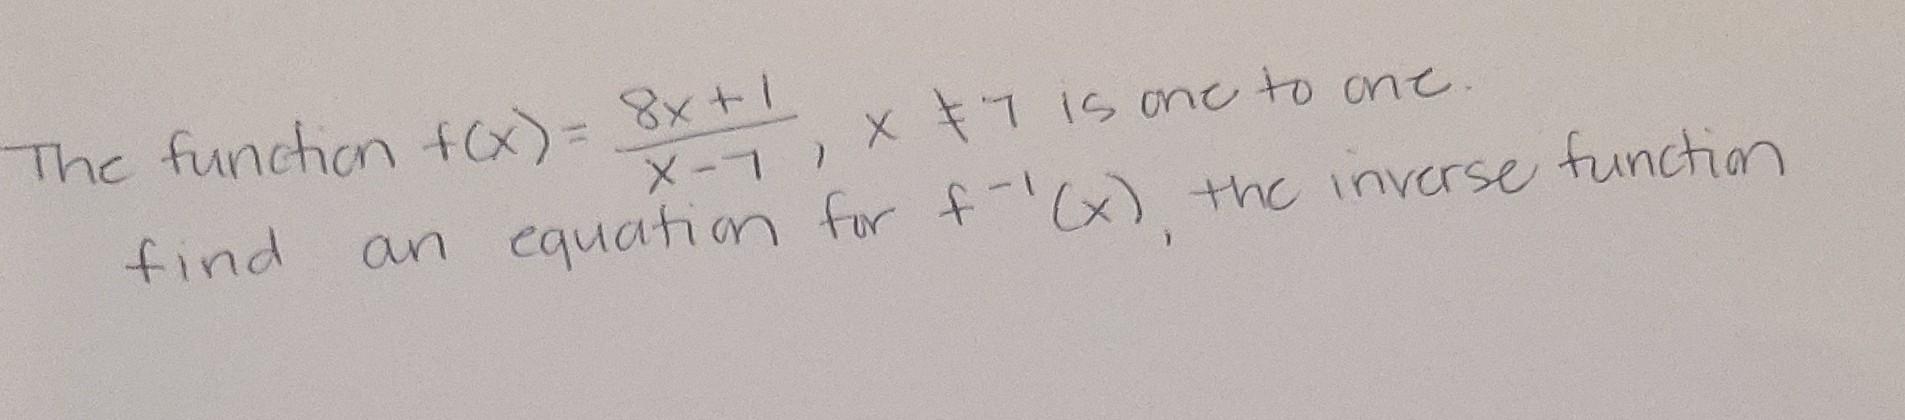 The function f(x) = (8x+1)/(x-7), x ≠ 7 is one to one.
find an equation for f⁻¹(x), the inverse function